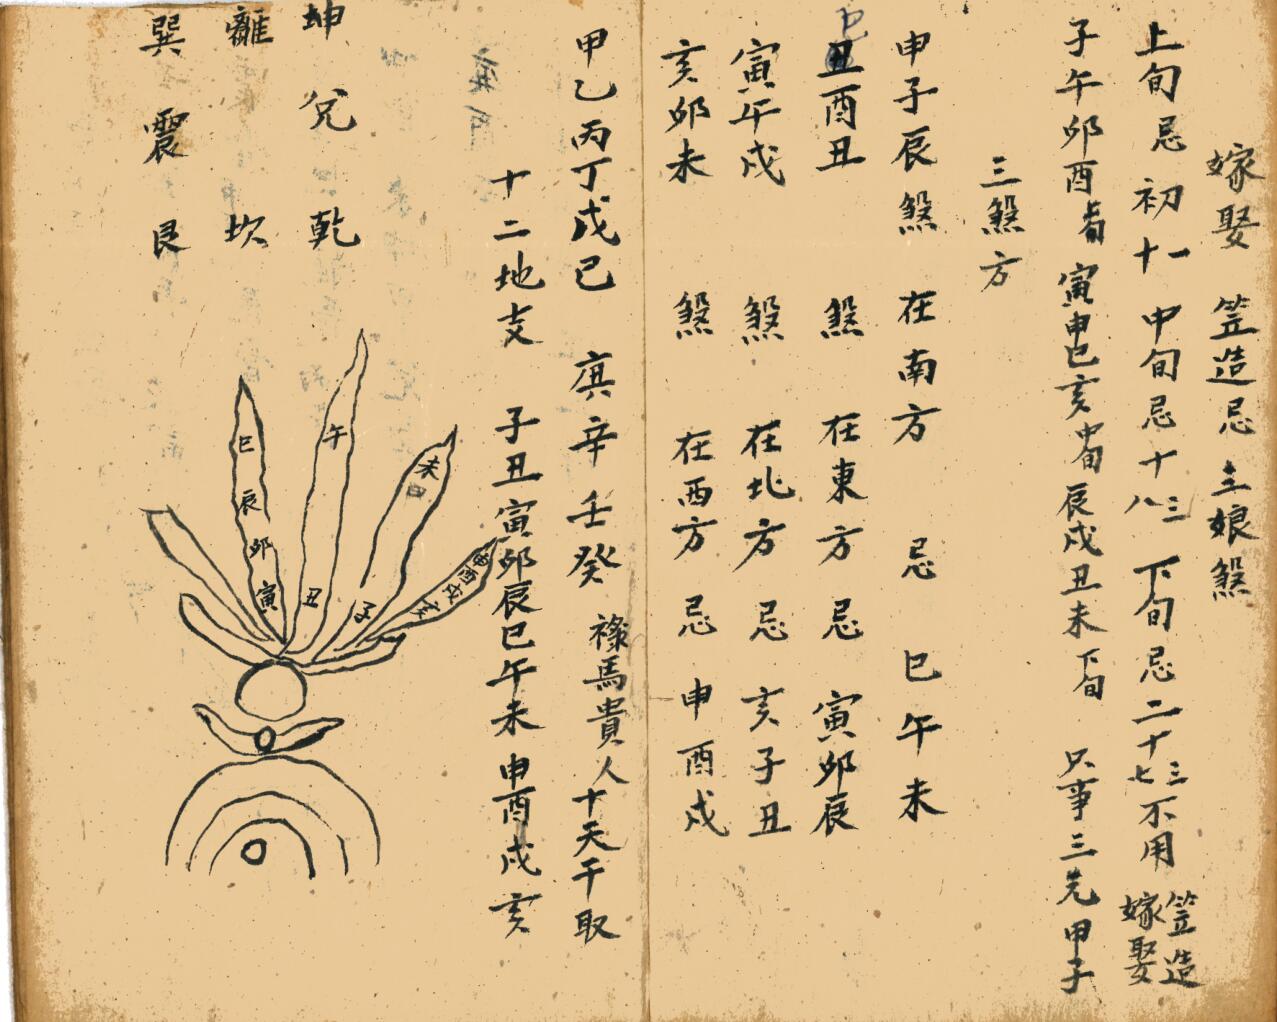 嫁娶 笠造忌 主娘煞
上旬忌初十一 中旬忌十三八 下旬忌二十三七不用 笠造嫁娶
子午卯酉 寅申巳亥 中旬 辰戌丑未 下旬 只事三元甲子
三煞方
申子辰煞 在南方 忌 巳午未
巳酉丑 煞 在東方 忌 寅卯辰
寅午戌 煞 在北方 忌 亥子丑
亥卯未 煞 在西方 忌 申酉戌
甲乙丙丁戊己 庚辛壬癸 祿馬貴人十天干取
十二地支 子丑寅卯辰巳午未申酉戌亥
坤 兌 乾
離 坎
巽 震 艮
申酉戌亥
未
子
午 丑
巳辰卯寅